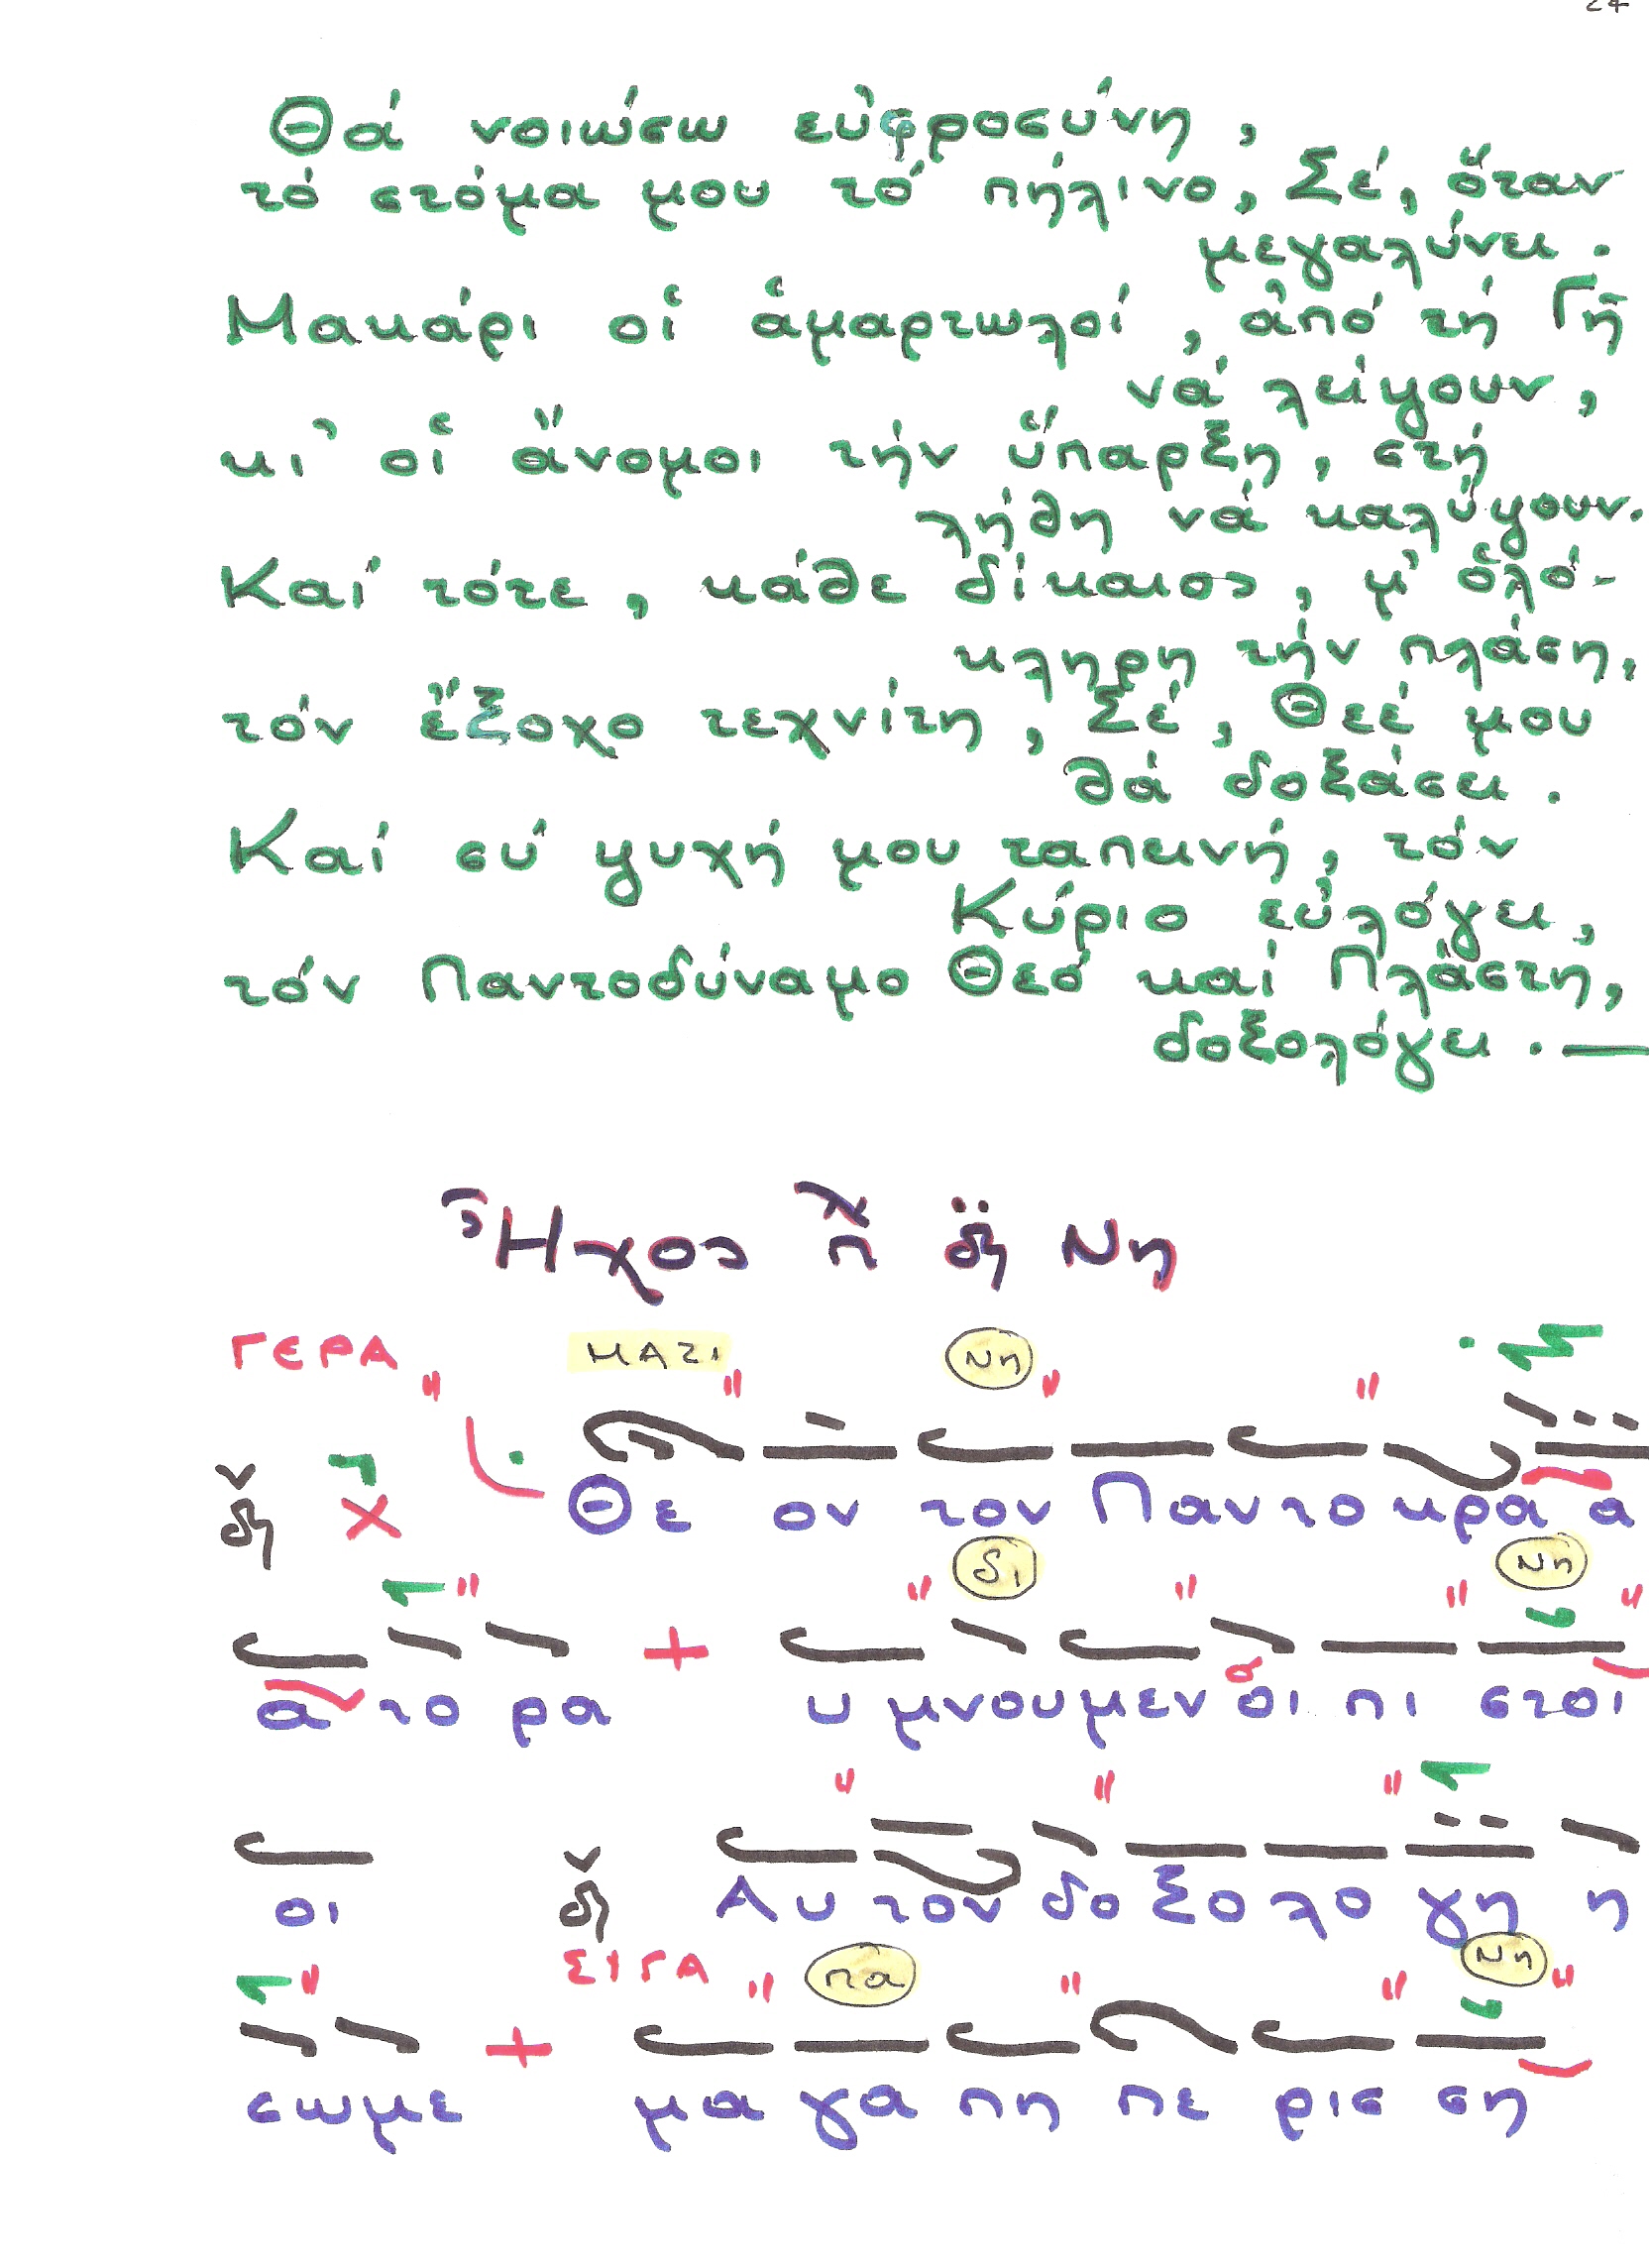 24
Θά νοιώσω εὐφροσύνη,
τό στόμα μου τό πήλινο, Σέ, ὅταν
μεγαλύνει.
Μακάρι οἱ ἁμαρτωλοί, ἀπό τή Γῆ
νά λείψουν,
κι᾿ οἱ ἄνομοι τήν ὕπαρξη, στή
λήθη νά καλύψουν.
Καί τότε, κάθε δίκαιος, μ᾿ ὁλό-
κληρη τήν πλάση,
τόν ἔξοχο τεχνίτη, Σέ, Θεέ μου
θά δοξάσει.
Καί σύ ψυχή μου ταπεινή, τόν
Κύριο εὐλόγει,
τόν Παντοδύναμο Θεό καί Πλάστη,
δοξολόγει.—
Ἦχος π δη Νη
ΓΕΡΑ ΜΑΖΙ Νη
δη Θε ον τον Παντοκρα α
Δι Νη
α το ρα υ μνουμεν οι πι στοι
οι δη Αυ τον δο ξο λο γη η
ΣΙΓΑ πα Νη
σωμε μα γα πη πε ρισ ση